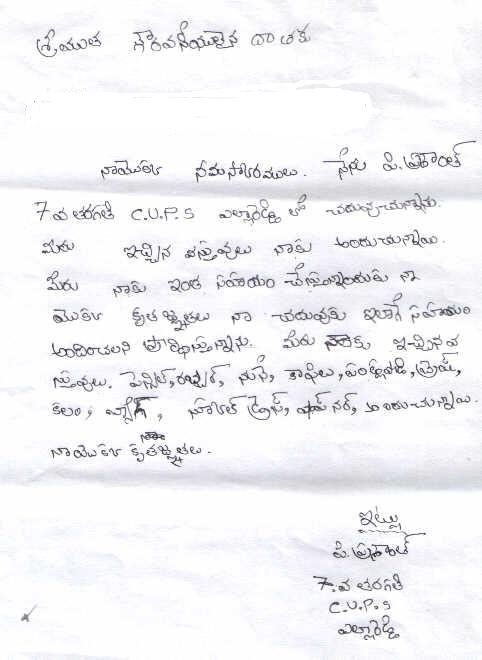 శ్రీయుత గౌరవనీయులైన దాతకు
నాయొక్క నమస్కారములు. నేను పి.ప్రశాంత్
7వ తరగతి C.U.P.S ఎల్లారెడ్డి లో చదువుచున్నాను.
మీరు ఇచ్చిన వస్తువులు నాకు అందుచున్నాయి.
మీరు నాకు ఇంత సహాయం చేస్తున్నందుకు నా
యొక్క కృతజ్ఞతలు నా చదువుకు ఇలాగే సహాయం
అందించాలని ప్రార్థిస్తున్నాను. మీరు నాకు ఇచ్చినవ
స్తువులు. పెన్సిల్, రబ్బర్, నూనె, కాపీలు,
కలం, బ్యాగ్, స్కూల్ డ్రెస్, షాప్ నర్, అందుచున్నాయి.
నాయొక్క కృతజ్ఞతలు.
ఇట్లు
పి.ప్రశాంత్
7.వ తరగతి
C.U.P.S
ఎల్లారెడ్డి